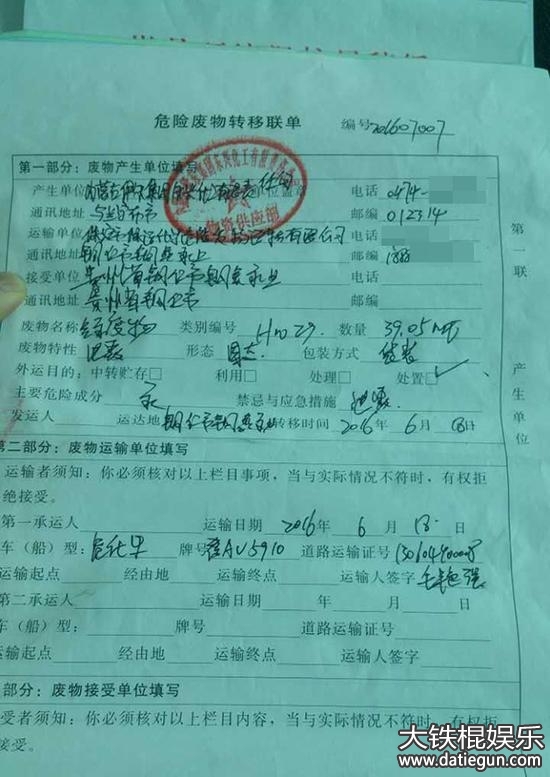 危险废物转移联单 编号201607007
第一部分：废物产生单位填写
产生单位 单位盖章 电话 0474-
物资供应部
通讯地址 邮编 012314
运输单位 有限公司 电话
通讯地址 铜仁市 邮编
接受单位 贵州省铜仁市 电话
通讯地址 贵州省铜仁市 邮编
废物名称 含汞废物 类别编号 HW29 数量 39.05
废物特性 毒 形态 固态 包装方式 袋装
外运目的：中转贮存□ 利用□ 处理□ 处置□✓
主要危险成分 汞 禁忌与应急措施
发运人 运达地 转移时间 2016年6月18日
第二部分：废物运输单位填写
运输者须知：你必须核对以上栏目事项，当与实际情况不符时，有权拒
绝接受。
第一承运人 运输日期 2016年6月18日
车（船）型：危化车 牌号 AV5910 道路运输证号
运输起点 经由地 运输终点 运输人签字
第二承运人 运输日期 年 月 日
车（船）型： 牌号 道路运输证号
运输起点 经由地 运输终点 运输人签字
部分：废物接受单位填写
受者须知：你必须核对以上栏目内容，当与实际情况不符时，有权拒
接受。
第一联 产生单位
大铁棍娱乐
www.datiegun.com